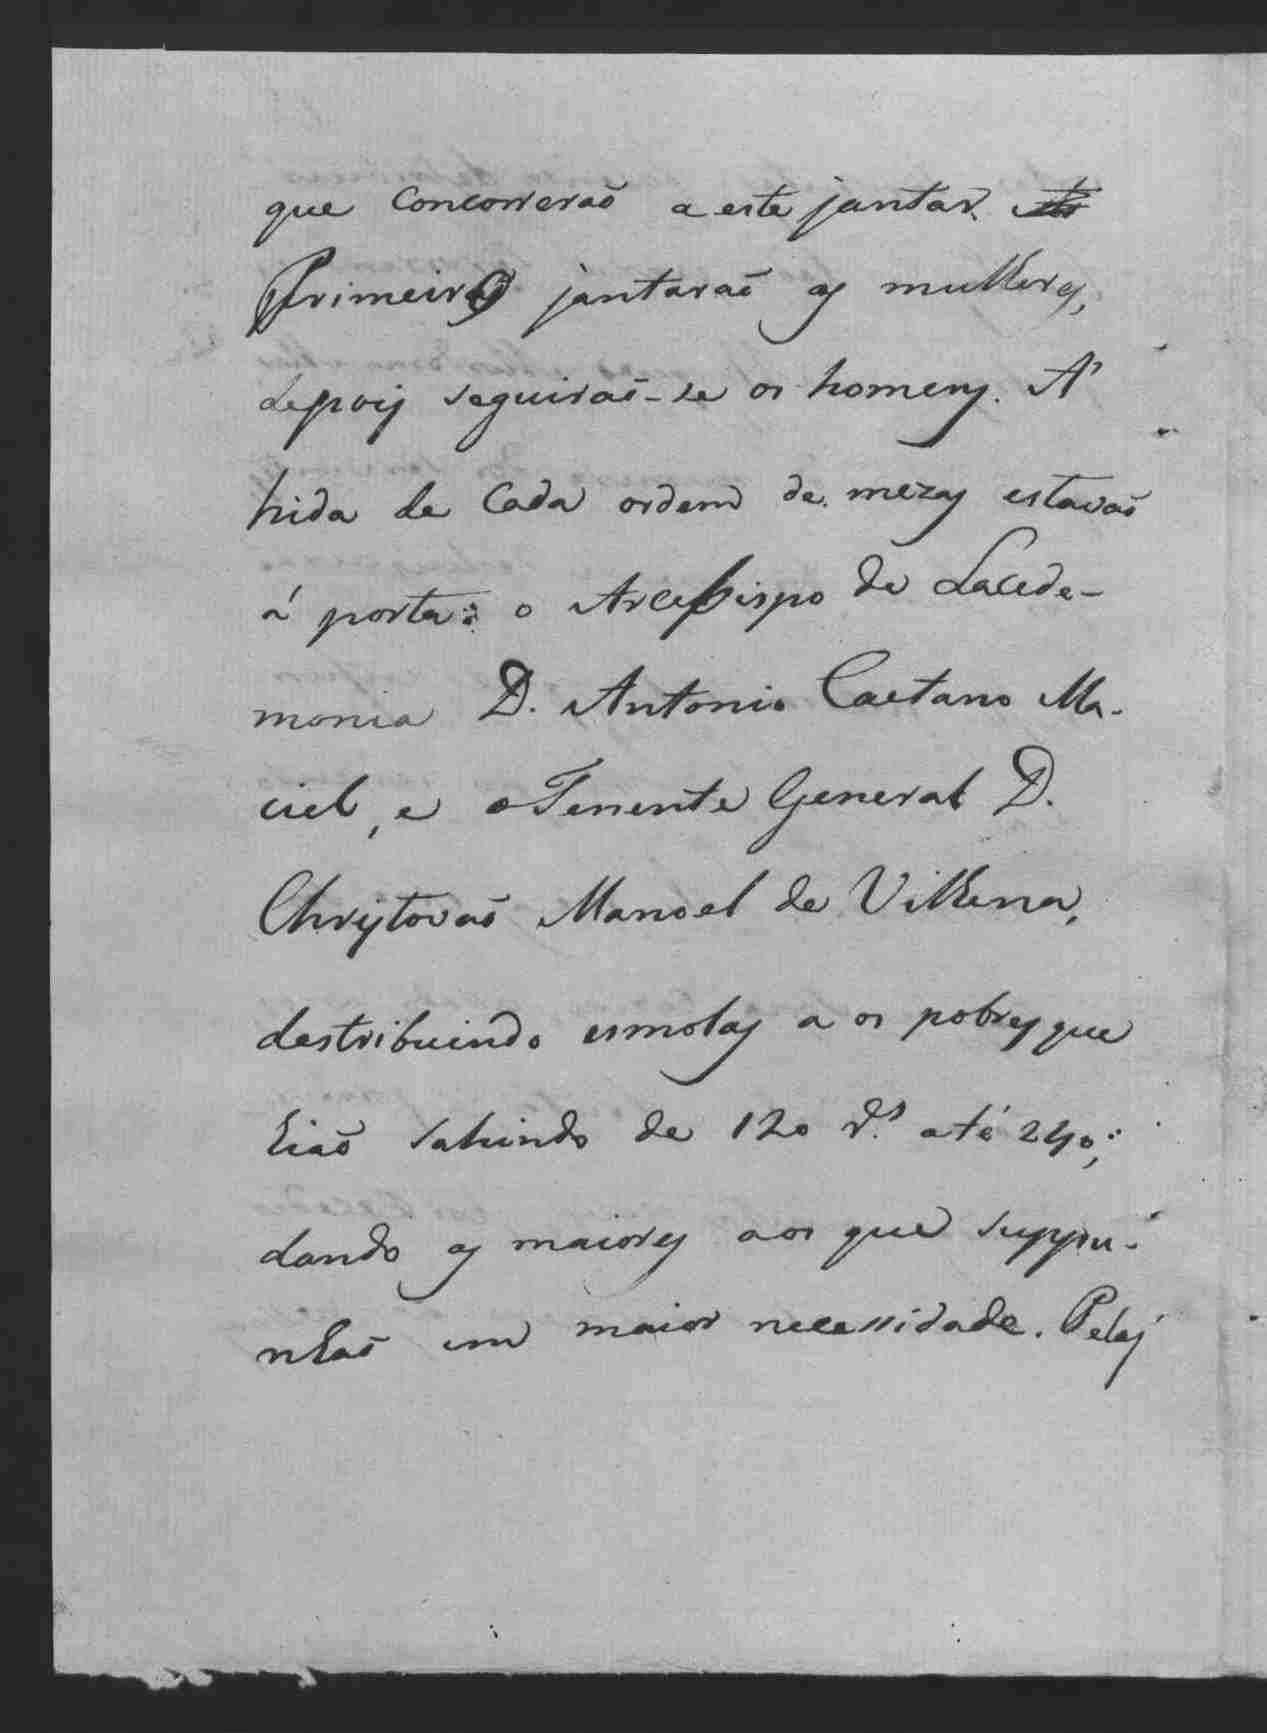 que concorrerão a este jantar. As
Primeiro jantarão as mulheres,
depois seguirão-se os homens. A'
hida de cada ordem de mezas estavão
á porta: o Arcebispo de Lacede-
monia D. Antonio Caetano Ma-
ciel, e o Tenente General D.
Christovão Manoel de Vilhena,
destribuindo esmolas a os pobres que
hião sahindo de 120 r.s até 240;
dando as maiores aos que suppu-
nhão em maior necessidade. Pelas